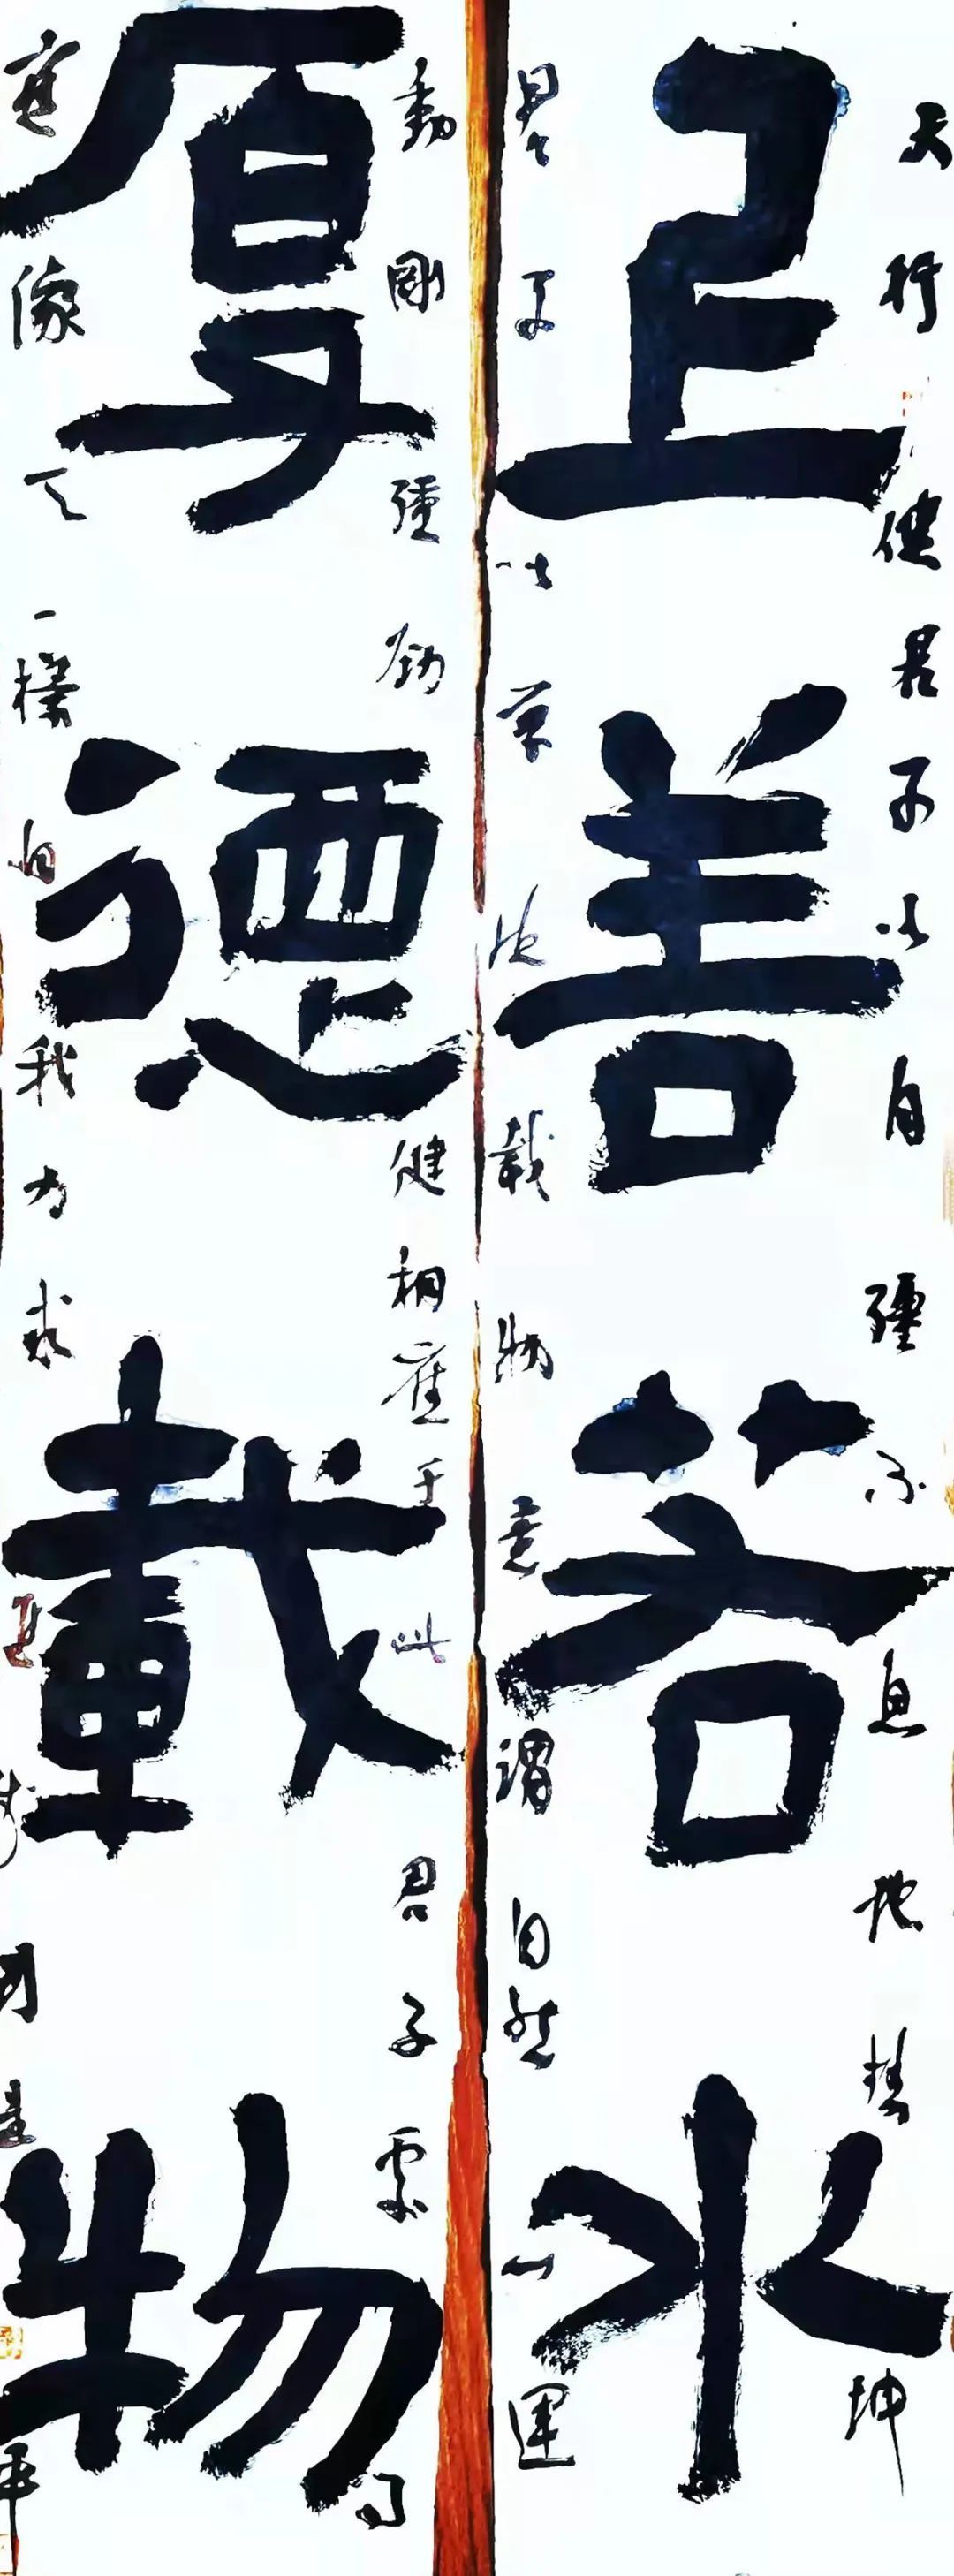 上善若水
厚德載物
天行健君子以自彊不息地势坤
君子以厚德載物意謂自然
運
動剛強劲健相應于此君子處
應像天一樣自我力求